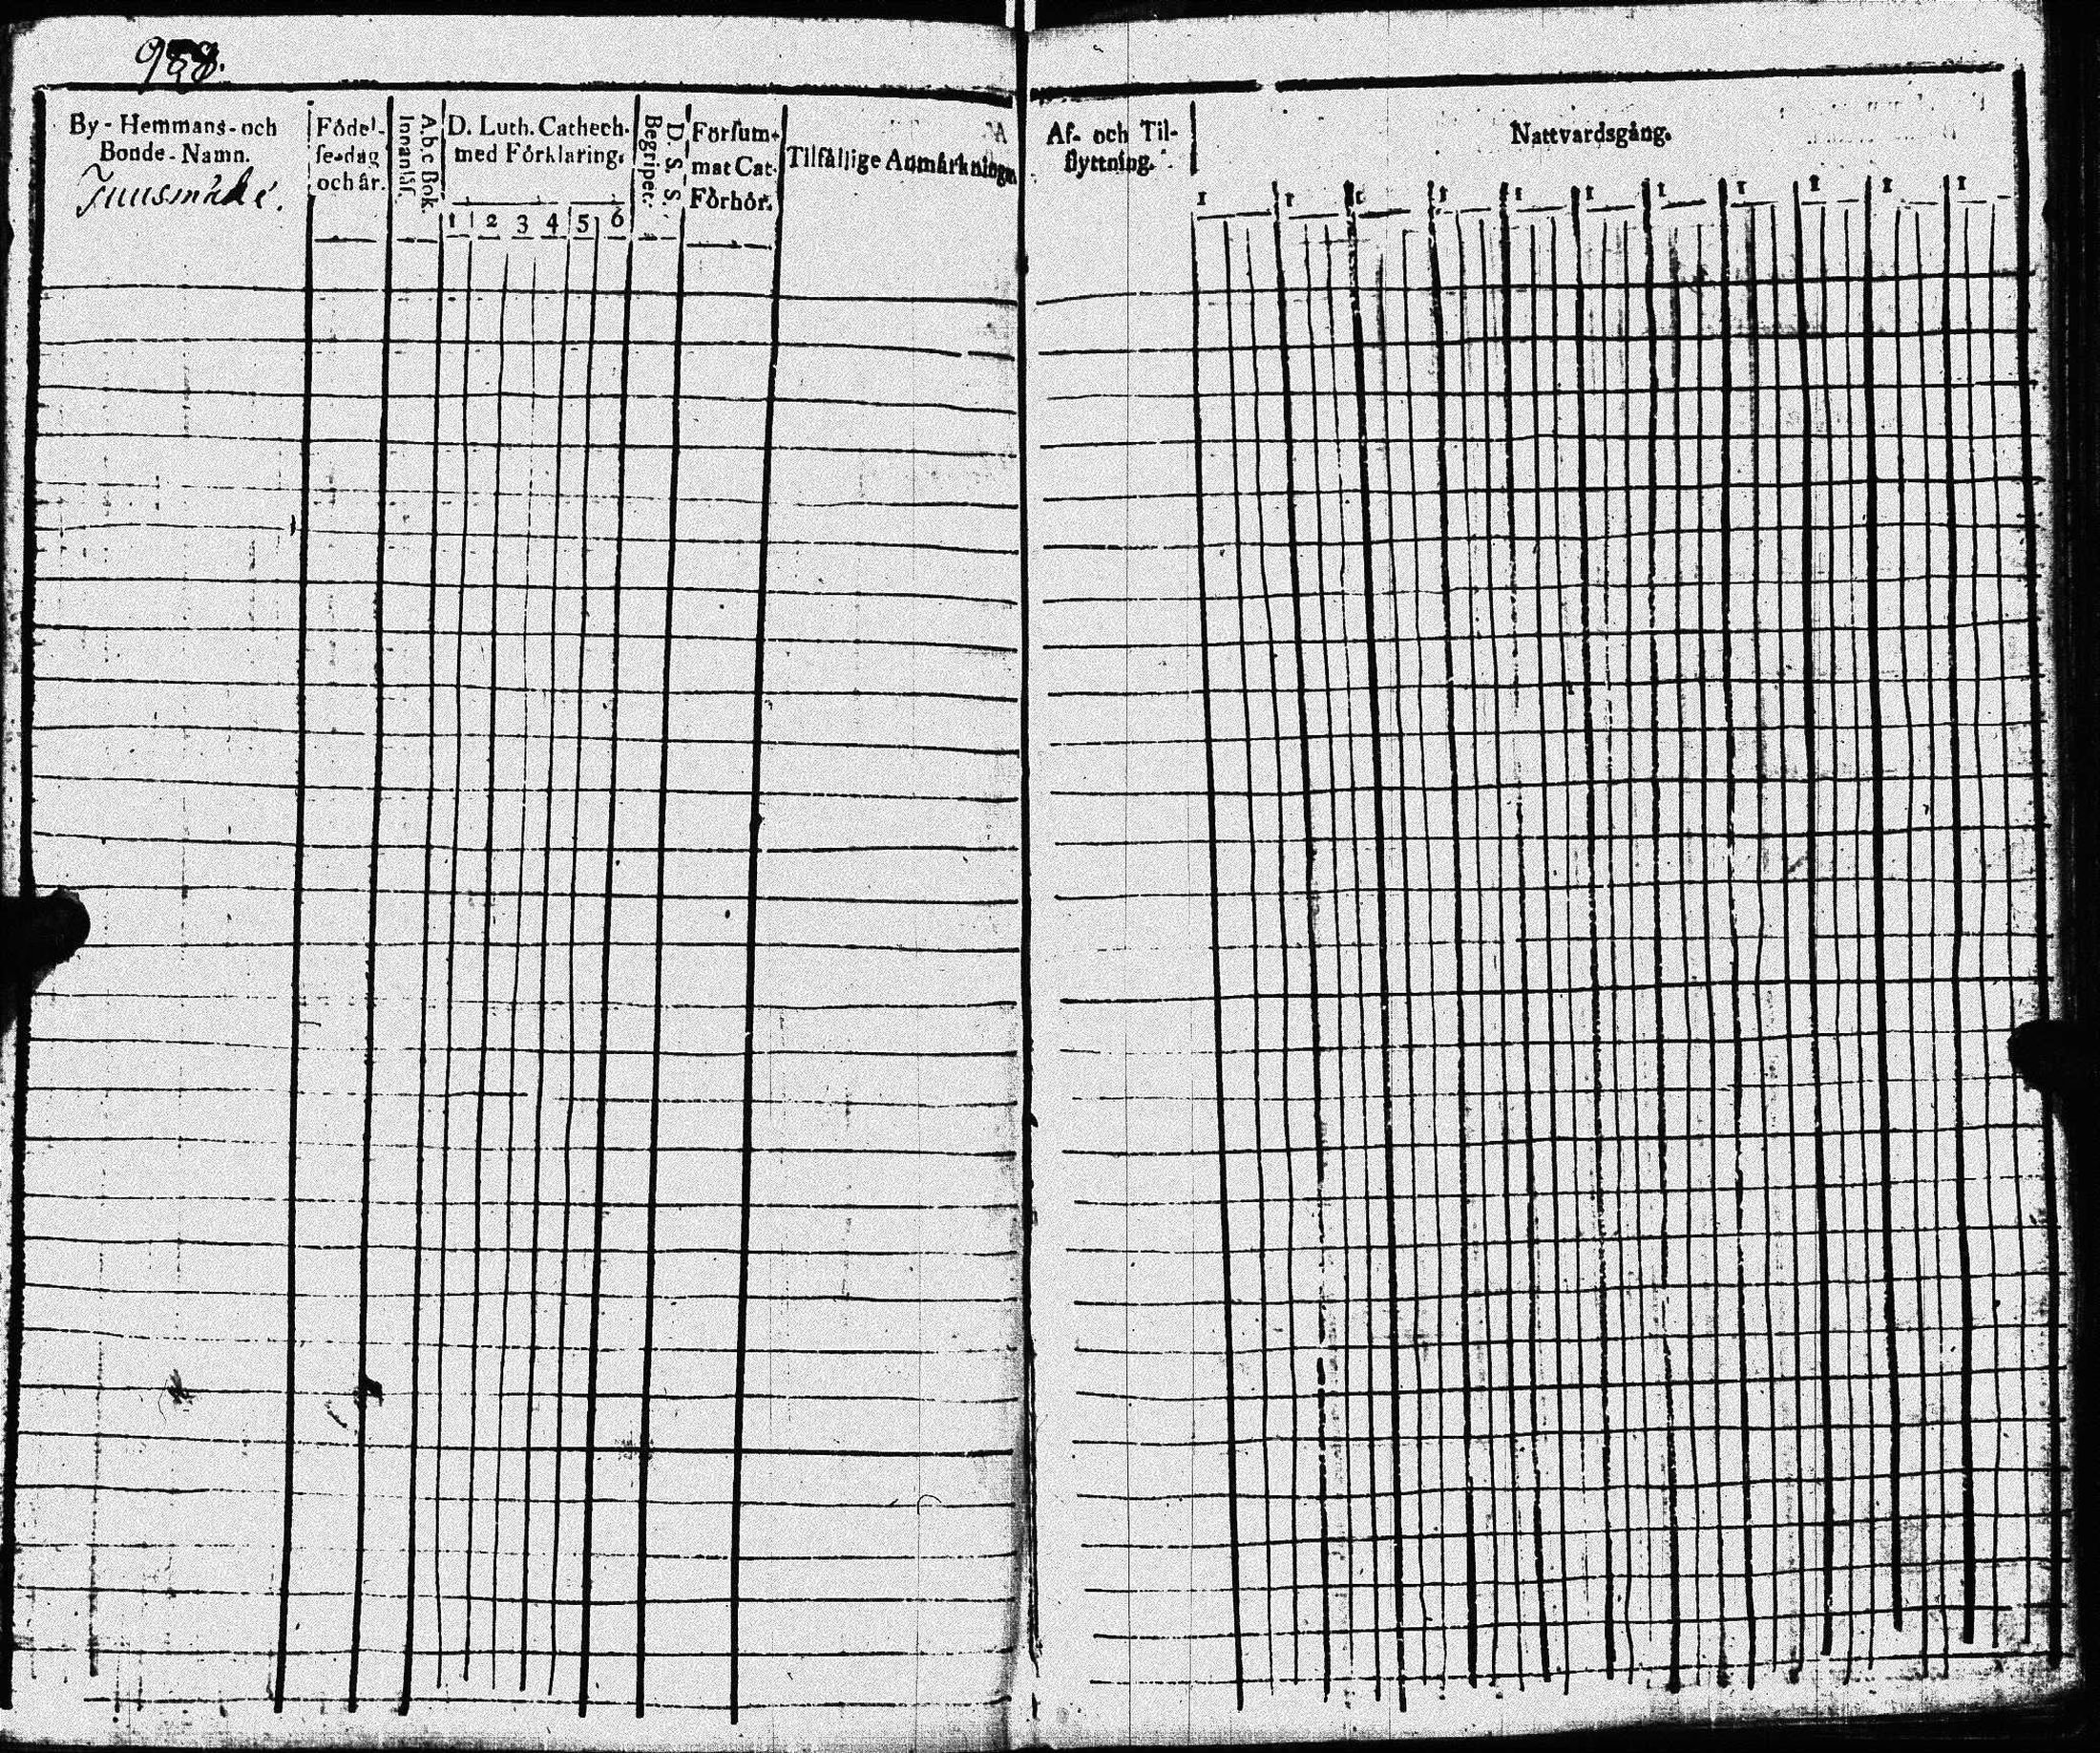 By-Hemmans-och
Bonde-Namn.
Juusmäki.
Födel-
se-dag
och år.
A.b.c Bok.
Innanläs.
D. Luth. Cathech.
med Förklaring.
1 2 3 4 5 6
D. S. S.
Begriper.
Försum-
mat Cat.
Förhör.
Tilfällige Anmärkningar
Af- och Til-
flyttning.
Nattvardsgång.
1 1 1 1 1 1 1 1 1 1 1